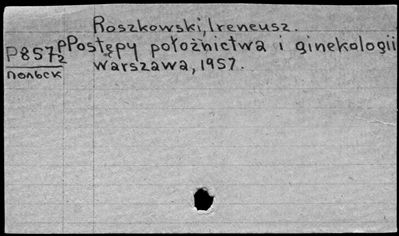 Roszkowski, Ireneusz.
P857 P/2 Postępy położnictwa i ginekologii
польск Warszawa, 1957.